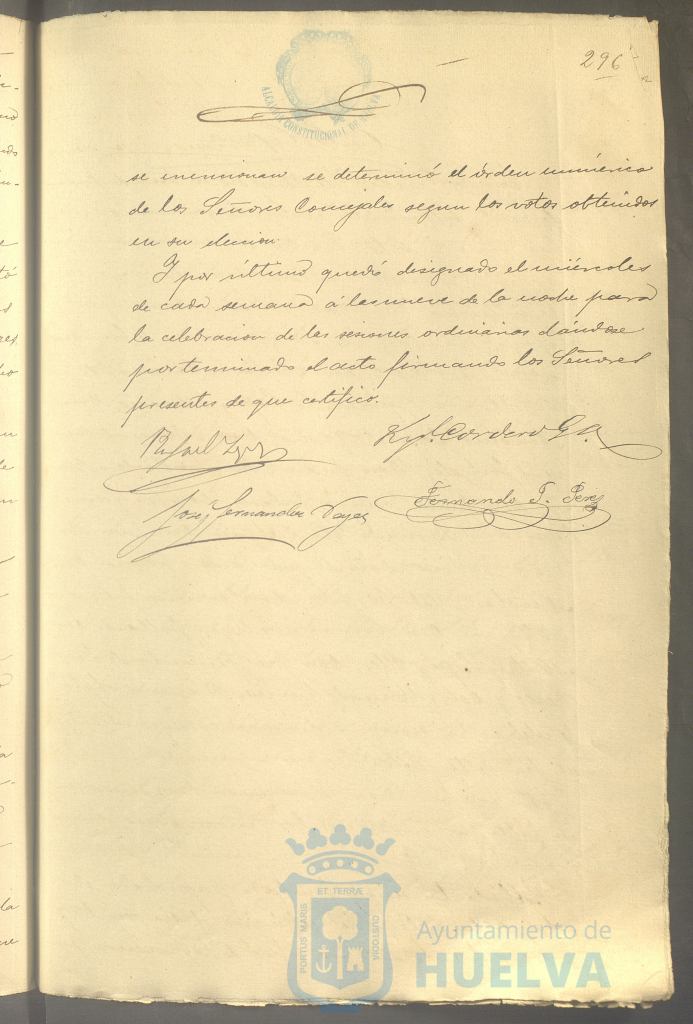 296
ALCALDIA CONSTITUCIONAL DE HUELVA
se mencionan se determinó el órden numérico
de los Señores Concejales segun los votos obtenidos
en su eleccion.
Y por último quedó designado el miércoles
de cada semana á las nueve de la noche para
la celebracion de las sesiones ordinarias dándose
por terminado el acto firmando los Señores
presentes de que certifico.
Rafael
Cordero
José Fernandez
Fernando T. Perez
ET TERRÆ
PORTUS MARIS
CUSTODIA
Ayuntamiento de
HUELVA